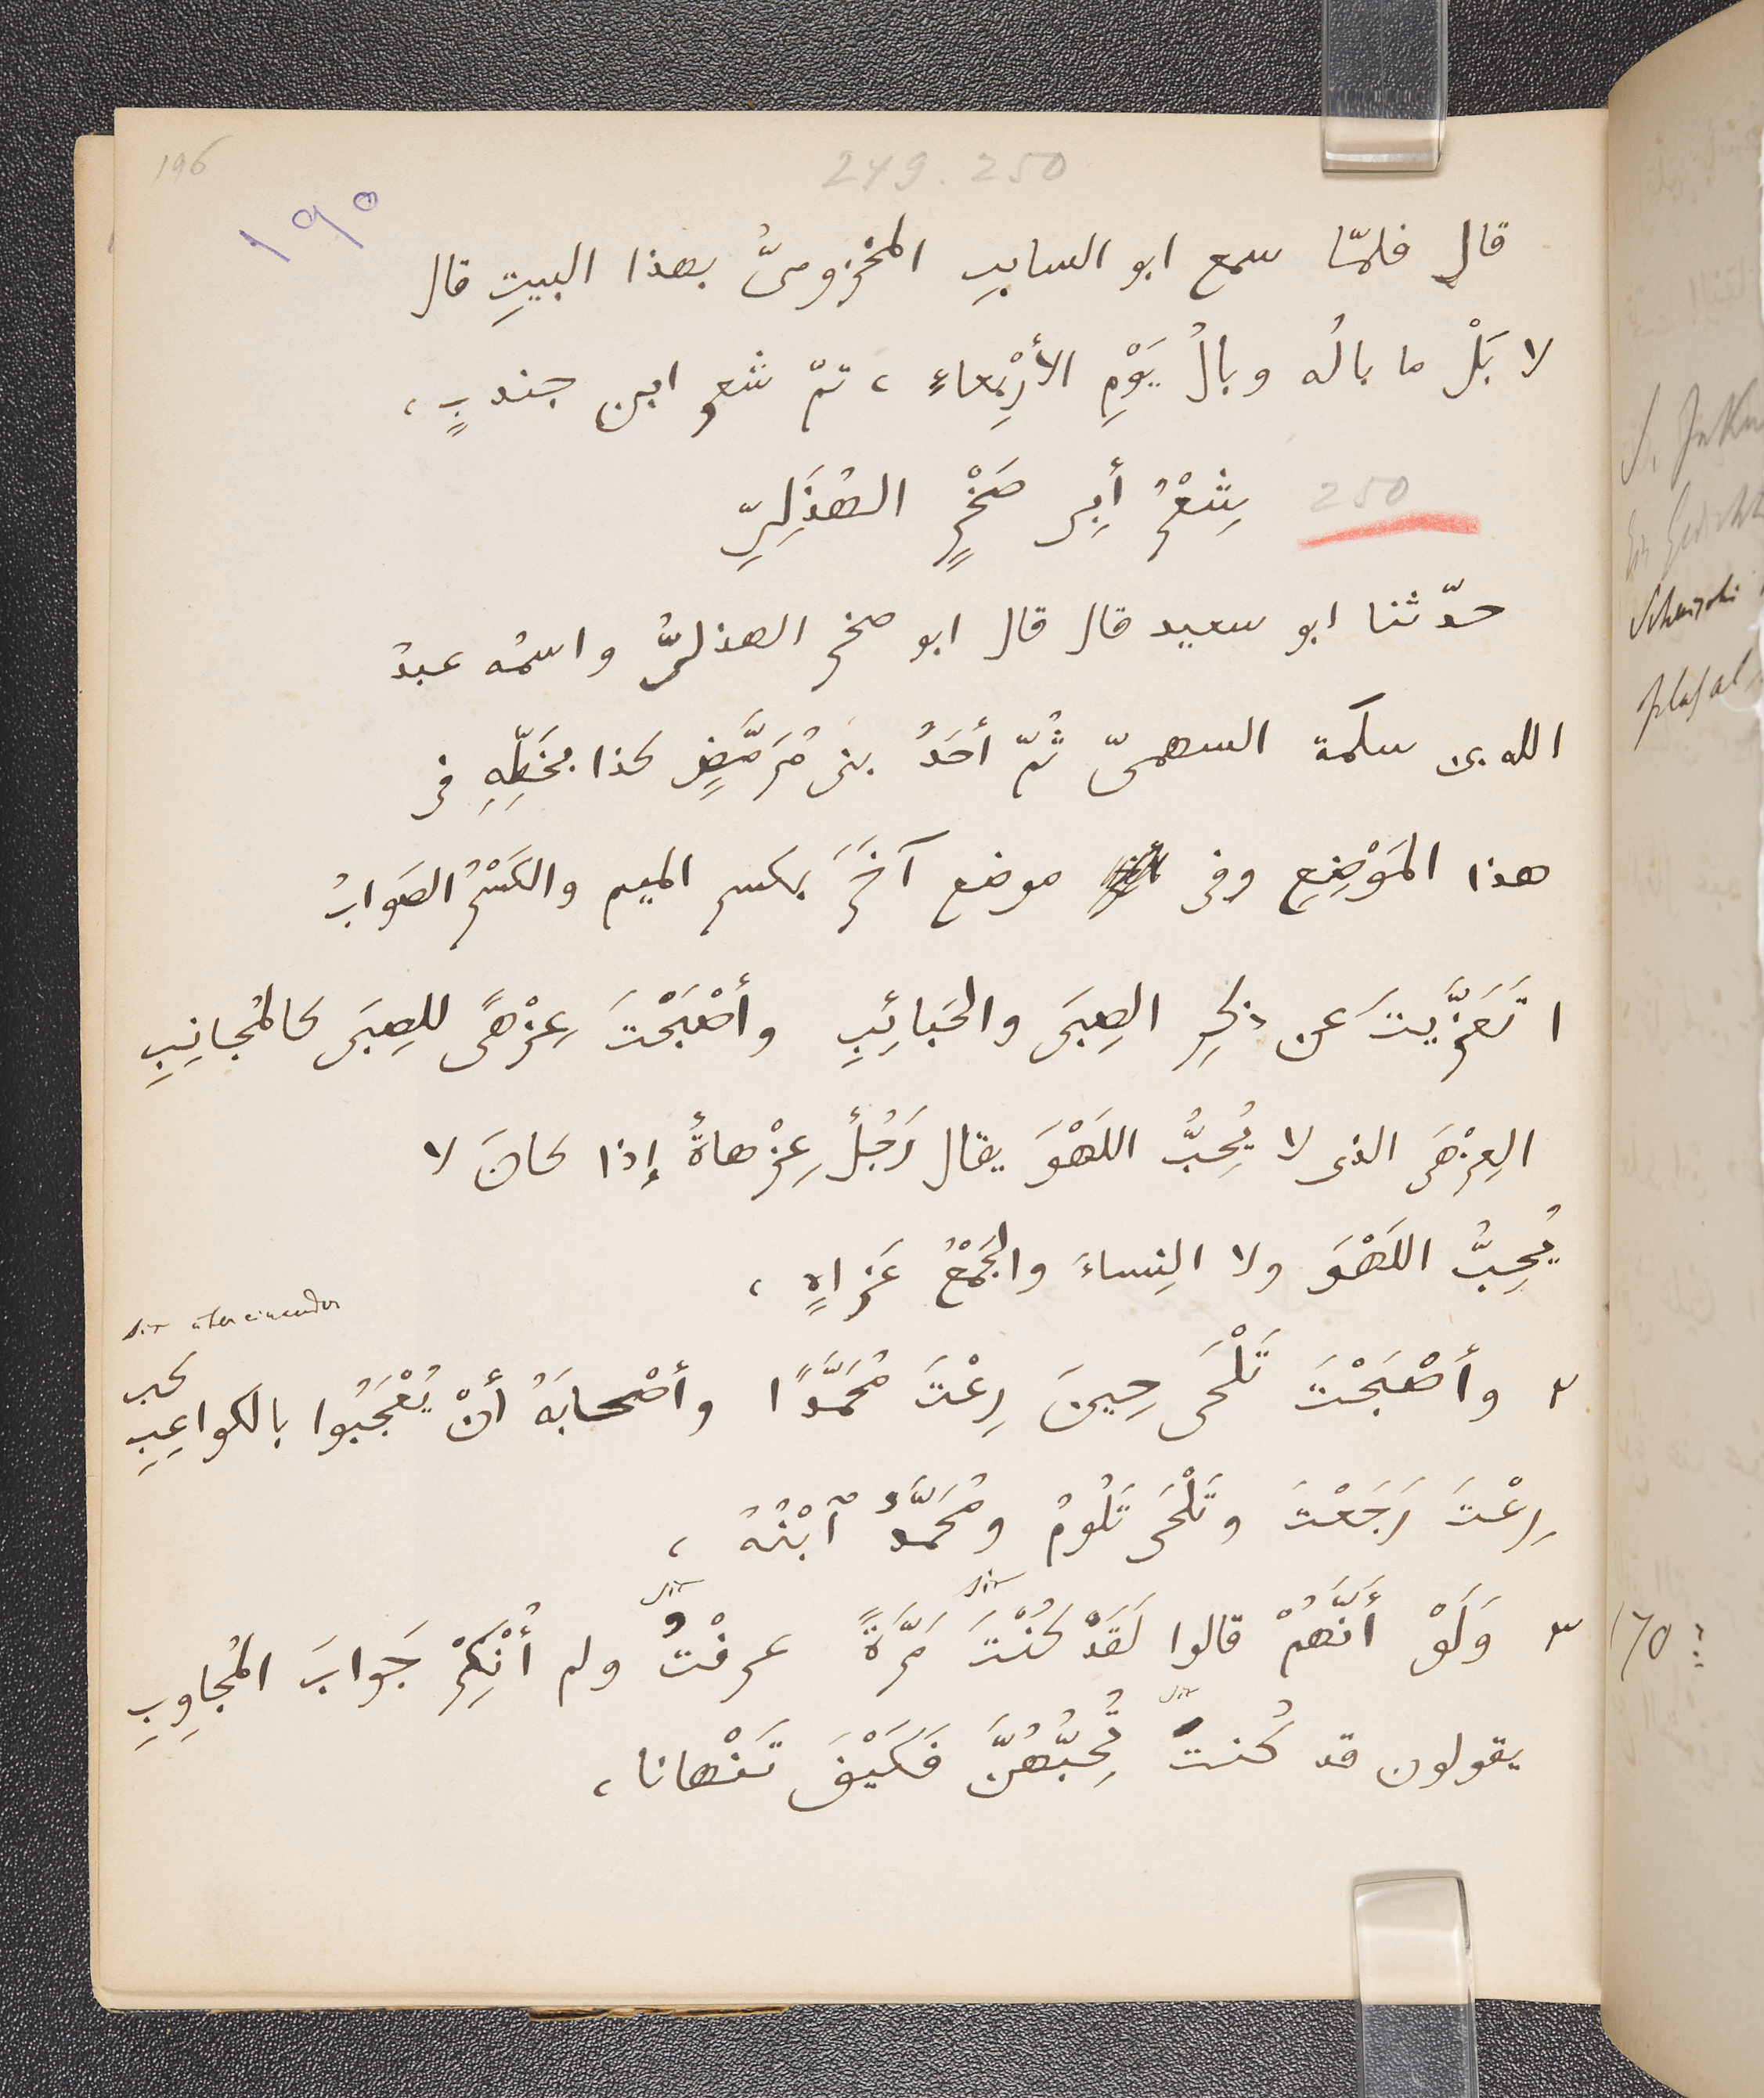 196
249. 250
١٩٥
قال فلمّا سمع ابو السايب المخزومىُّ بهذا البيتِ قال
لا بَلْ ما بالُه وبالُ يَوْمِ الأَرْبِعاءِ ، تمّ شعر ابن جندبٍ ،
250 شِعْرُ أَبِى صَخْرٍ الهُذَلِىِّ
حدّثنا ابو سعيد قال قال ابو صخر الهذلىُّ واسمُه عبدُ
الله بن سلمة السهمىّ ثُمّ أحَدُ بنى مُرَمَّضٍ كذا بِخَطِّهِ فى
هذا المَوْضِعِ وفى موضع آخَرَ بكسر الميم والكَسْرُ الصَوابُ
١ تَعَزَّيتَ عن ذِكرِ الصِبَى والحَبائِبِ وأصْبَحْتَ عِزْهًى للصِبَى كالمُجانِبِ
العِزْهَى الذى لا يُحِبُّ اللَهْوَ يقال رَجُلٌ عِزْهاةٌ إذا كانَ لا
يُحِبُّ اللَهْوَ ولا النِساءَ والجَمْعُ عَزاهٍ ،
٢ وأصْبَحْتَ تَلْحَى حِينَ رِعْتَ مُحَمَّدًا وأصْحابَهُ أنْ يُعْجَبُوا بالكواعِبِ
رِعْتَ رَجَعْتَ وتَلْحَى تَلُومُ ومُحَمَّدٌ ٱبْنُهُ ،
sic sic
٣ وَلَوْ أَنَّهُمْ قالوا لَقَدْ كُنْتَ مَرَّةً عرفْتُ ولم أُنْكِرْ جَوابَ المُجاوِبِ
sic
يقولون قد كُنتَ تُحِبُّهُنَّ فَكَيْفَ تَنْهانا ،